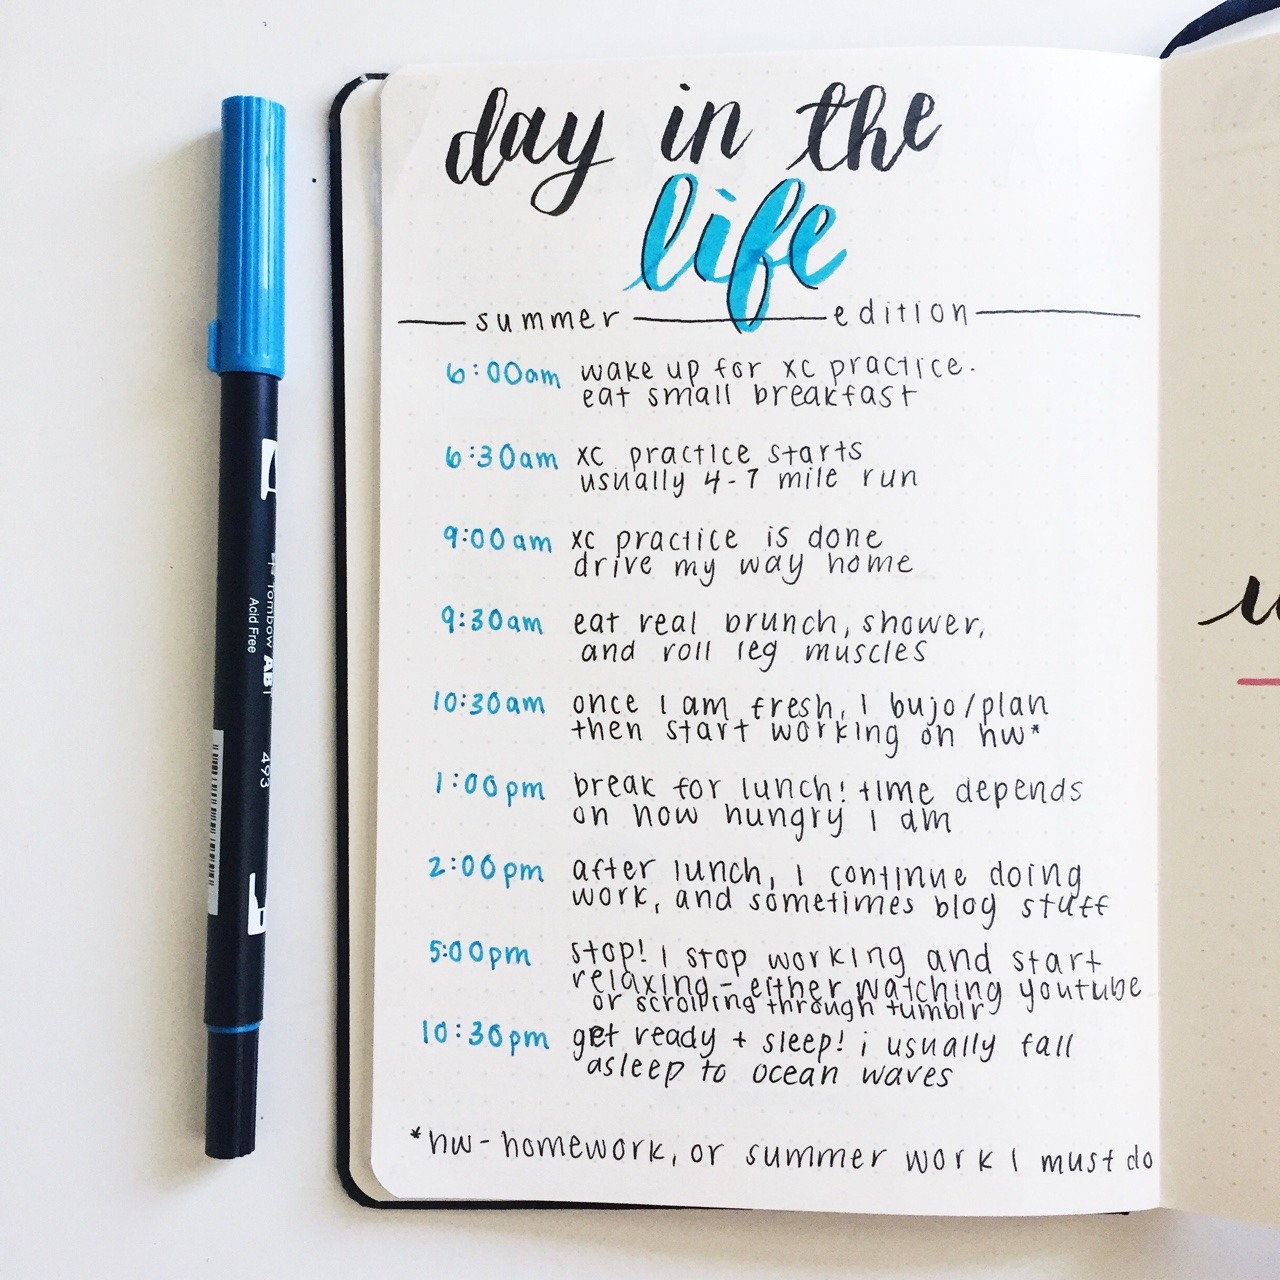 day in the
life
summer edition
6:00am wake up for xc practice.
eat small breakfast
6:30am xc practice starts
usually 4-7 mile run
9:00am xc practice is done
drive my way home
9:30am eat real brunch, shower,
and roll leg muscles
10:30am once I am fresh, I bujo/plan
then start working on hw*
1:00pm break for lunch! time depends
on how hungry I am
2:00pm after lunch, I continue doing
work, and sometimes blog stuff
5:00pm stop! I stop working and start
relaxing - either watching youtube
or scrolling through tumblr
10:30pm get ready + sleep! i usually fall
asleep to ocean waves
*hw - homework, or summer work I must do
Tombow ABT
Acid Free
493